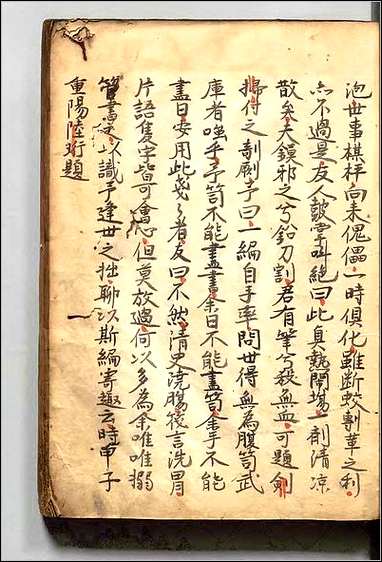 泡世事棋枰向来傀儡一時俱化雖断蛟剸革之利
亦不過是友人鼓掌叫絶曰此真熱鬧場一剤清凉
散矣夫鏌邪之兮鉛刀割君有筆兮殺無血可題劍
掃付之剞劂予曰一編自手率問世得無為腹笥武
庫者嗤乎予笥不能盡書余日不能盡笥余手不能
盡日安用此戔戔者友曰不然清史浣腸筱言洗胃
片語隻字皆可會心但莫放過何以多為余唯唯搦
管書之以識予逢世之拙聊以斯編寄趣云時甲子
重陽陸珩題